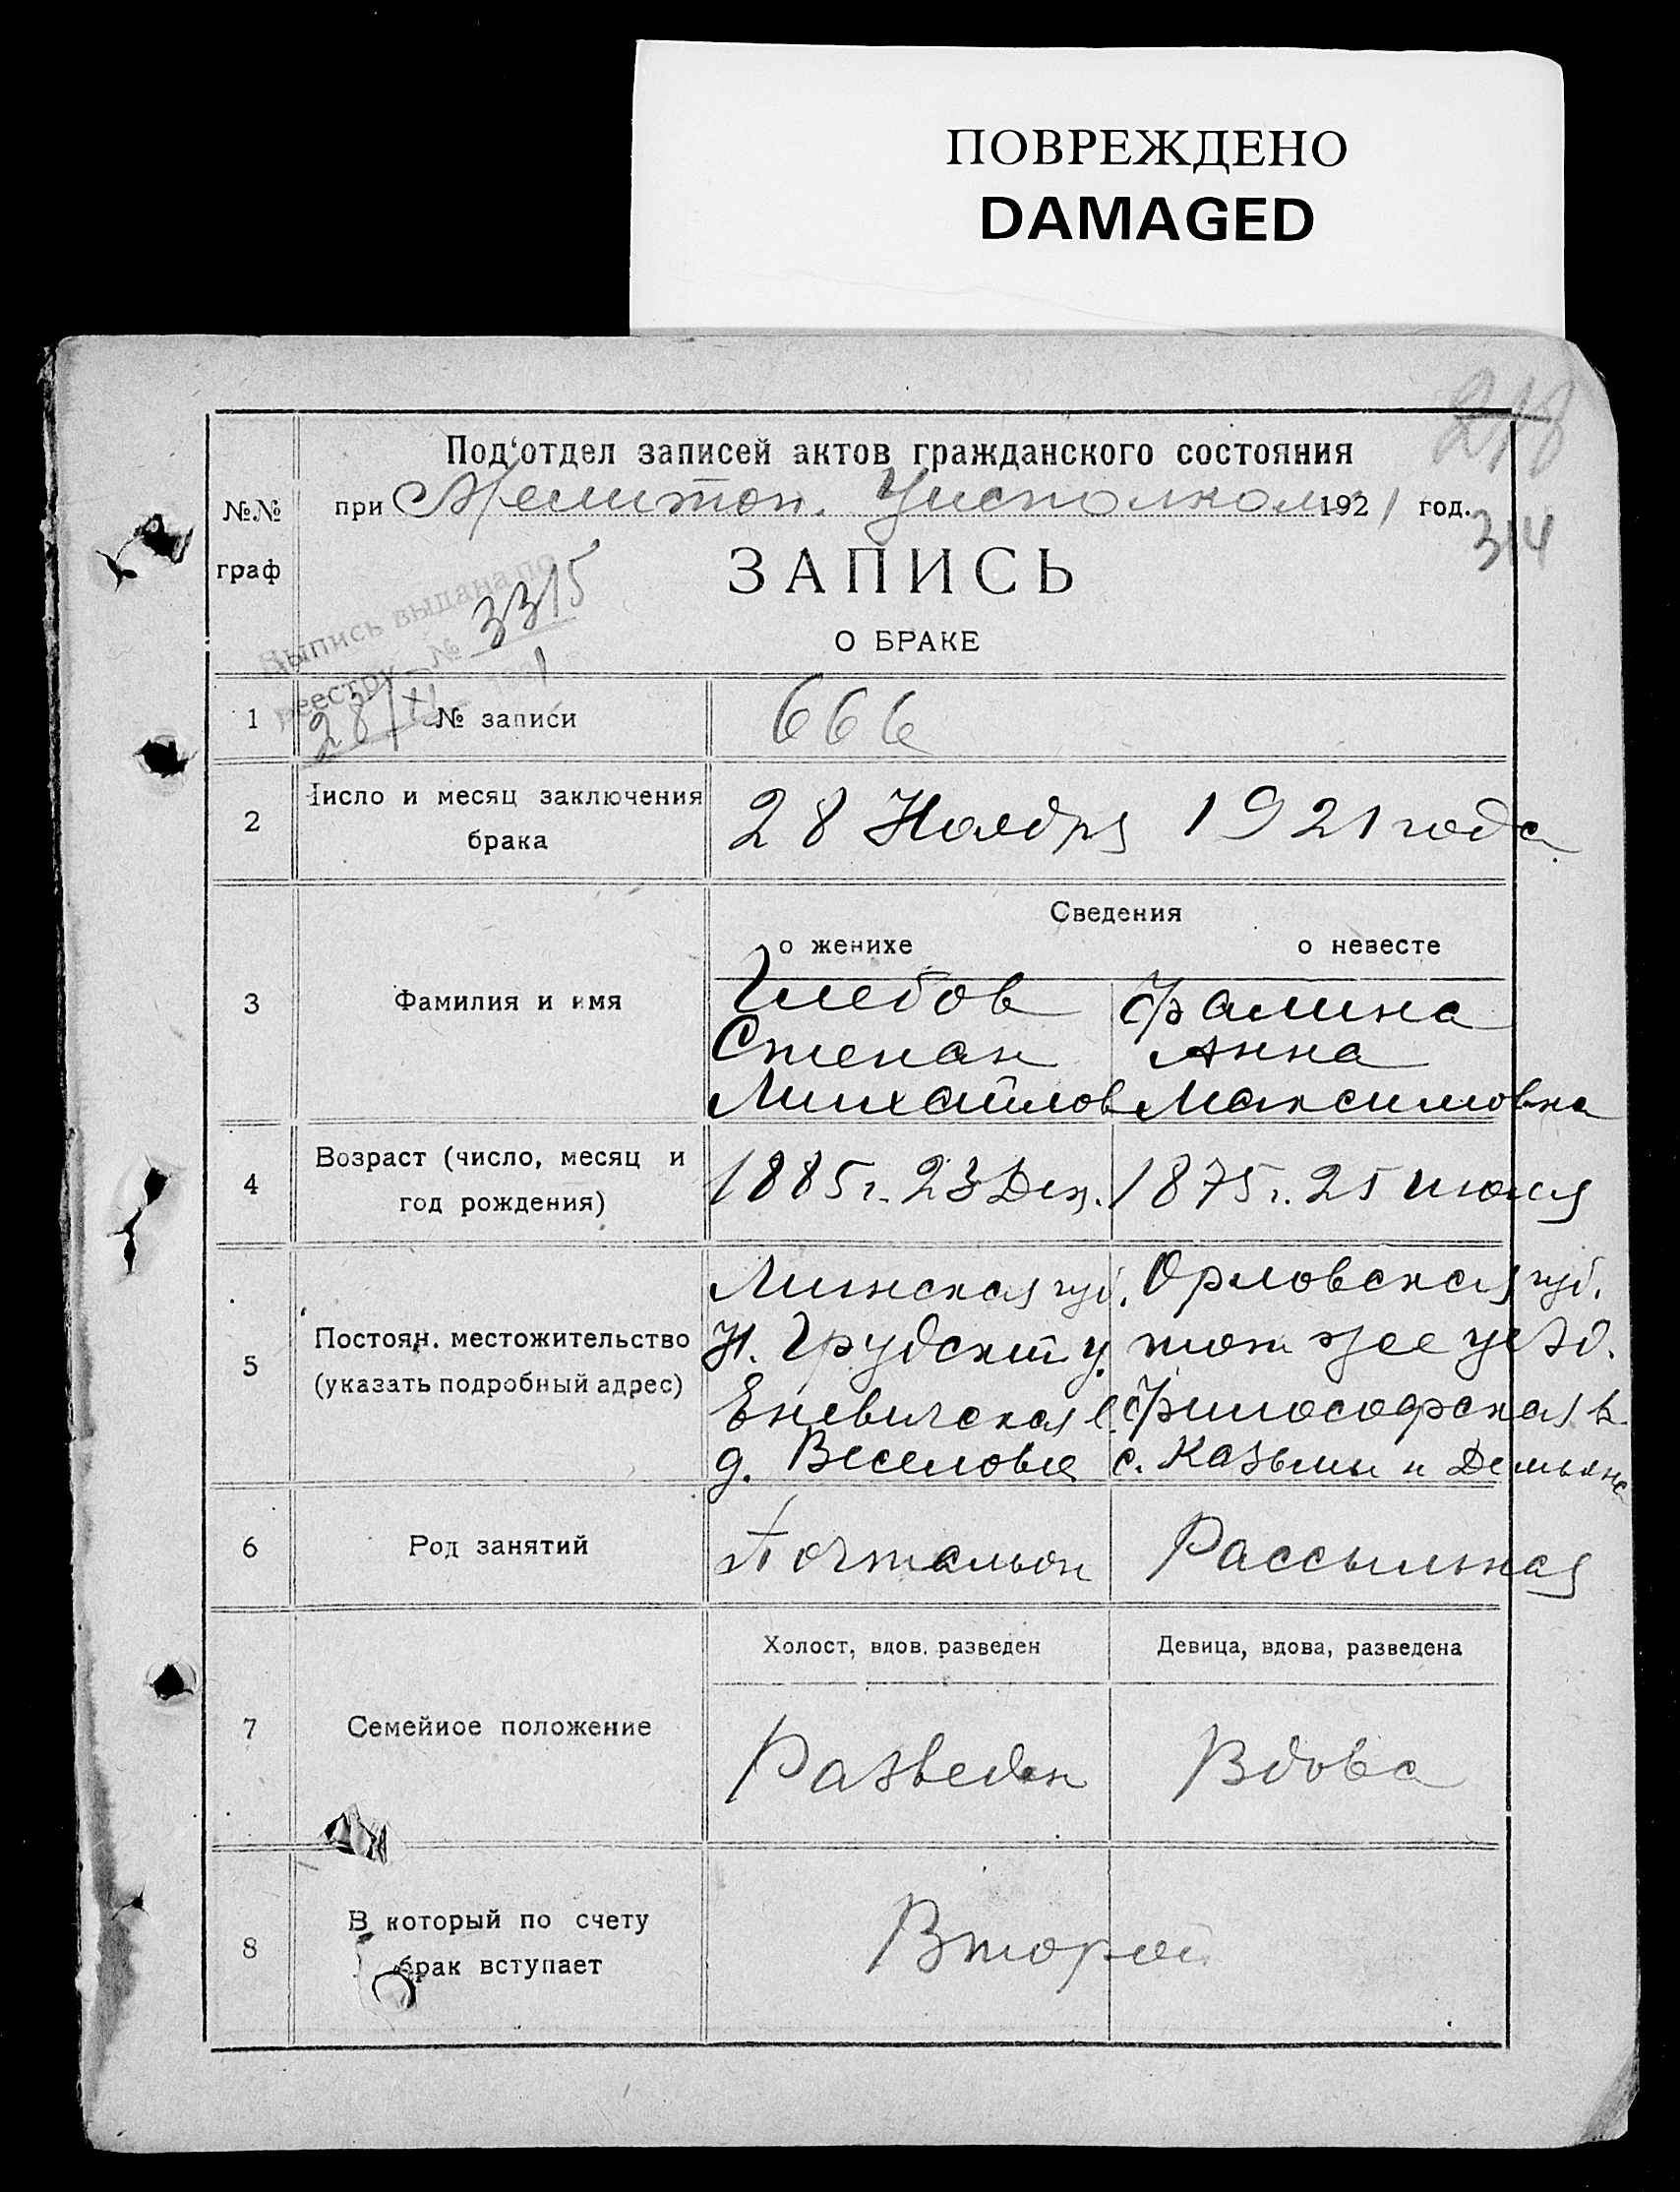 ПОВРЕЖДЕНО
DAMAGED
218
Под'отдел записей актов гражданского состояния
№№ граф
при Мелитоп. Уисполком 1921 год.
314
ЗАПИСЬ
О БРАКЕ
Выпись выдана по
реестру № 3315
28/XI 1921 г.
1 № записи 666
2 Число и месяц заключения брака 28 Ноября 1921 года
Сведения
о женихе о невесте
3 Фамилия и имя
Глебов Фалина
Степан Анна
Михайлов Максимовна
4 Возраст (число, месяц и год рождения) 1885 г. 23 Дек. 1875 г. 25 июля
5 Постоян. местожительство (указать подробный адрес)
Минская губ. Орловская губ.
Н. Грудский у. того же уезд.
д. Веселово с. Казьмы и Демьяна
6 Род занятий Почтальон Рассыльная
Холост, вдов. разведен Девица, вдова, разведена
7 Семейное положение Разведен Вдова
8 В который по счету брак вступает Второй